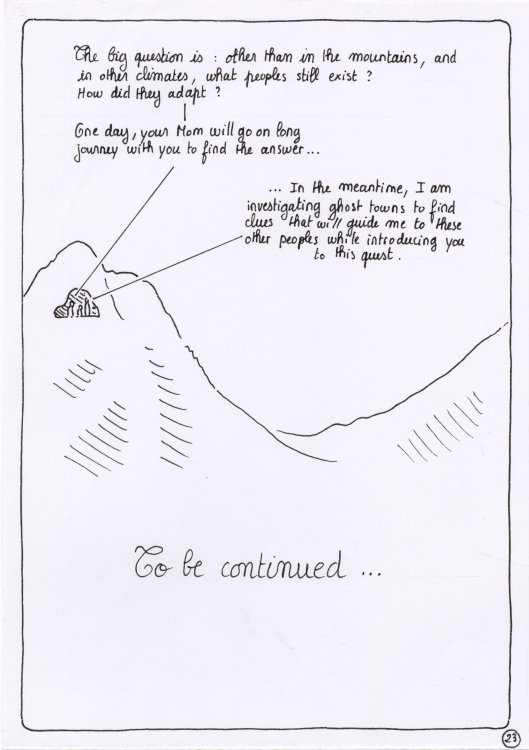 The big question is : other than in the mountains, and
in other climates, what peoples still exist ?
How did they adapt ?
One day, your Mom will go on long
journey with you to find the answer...
... In the meantime, I am
investigating ghost towns to find
clues that will guide me to these
other peoples while introducing you
to this quest.
To be continued ...
23